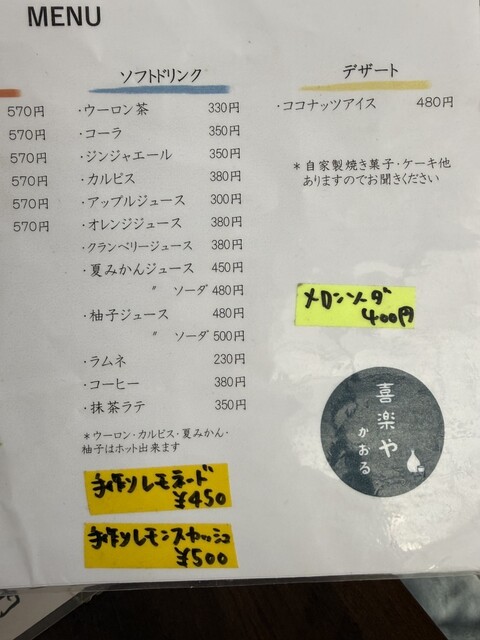 MENU
570円
570円
570円
570円
570円
570円
ソフトドリンク
・ウーロン茶 330円
・コーラ 350円
・ジンジャエール 350円
・カルピス 380円
・アップルジュース 300円
・オレンジジュース 380円
・クランベリージュース 380円
・夏みかんジュース 450円
〃 ソーダ 480円
・柚子ジュース 480円
〃 ソーダ 500円
・ラムネ 230円
・コーヒー 380円
・抹茶ラテ 350円
*ウーロン・カルピス・夏みかん・
柚子はホット出来ます
手作りレモネード
¥450
手作りレモンスカッシュ
¥500
デザート
・ココナッツアイス 480円
*自家製焼き菓子・ケーキ他
ありますのでお聞きください
メロンソーダ
400円
喜楽や
かおる